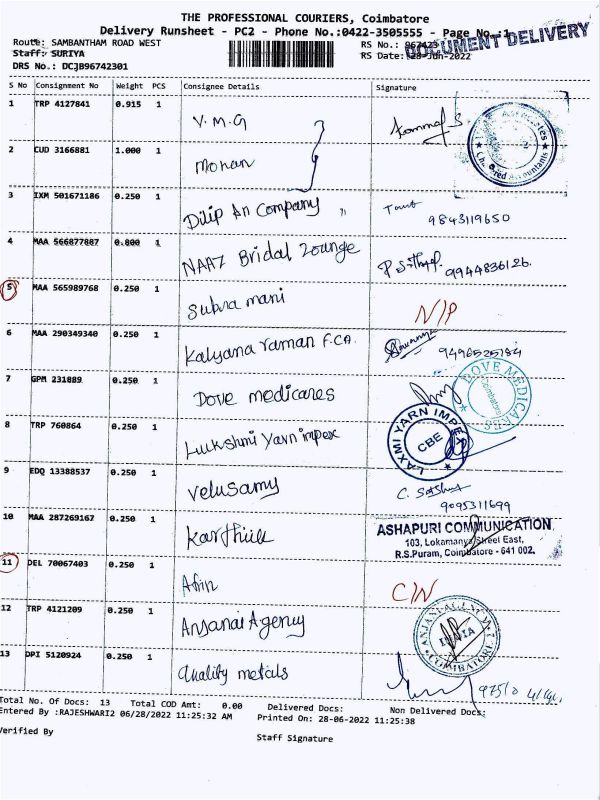 THE PROFESSIONAL COURIERS, Coimbatore
Delivery Runsheet - PC2 - Phone No.:0422-3505555 - Page No.:1
DOCUMENT DELIVERY
Route: SAMBANTHAM ROAD WEST
RS No.: 967423
Staff: SURIYA
RS Date: 28-Jun-2022
DRS No.: DCJB96742301
S No Consignment No Weight PCS Consignee Details Signature
1 TRP 4127841 0.915 1 V.M.G
Associates
Chartered Accountants
2 CUD 3166881 1.000 1 Mohan
3 IXM 501671186 0.250 1 Dilip An Company 9843119650
4 MAA 566877887 0.800 1 NAAZ Bridal Lounge 9944836126.
5 MAA 565989768 0.250 1 Subra mani N/P
6 MAA 290349340 0.250 1 Kalyana raman F.CA. 9496525184
7 GPM 231889 0.250 1 Dove medicares
DOVE MEDICARES
Coimbatore
8 TRP 760864 0.250 1 Lukshmi Yarn impex
LAXMI YARN IMPEX
CBE
9 EDQ 13388537 0.250 1 Velusamy
9095311699
10 MAA 287269167 0.250 1 Karthick
ASHAPURI COMMUNICATION
103, Lokamanya Street East,
R.S.Puram, Coimbatore - 641 002.
11 DEL 70067403 0.250 1 C/N
12 TRP 4121209 0.250 1 Anjanai Agency
COIMBATORE
INDIA
13 DPI 5120924 0.250 1 Quality metals
Total No. Of Docs: 13 Total COD Amt: 0.00 Delivered Docs: Non Delivered Docs:
Entered By :RAJESHWARI2 06/28/2022 11:25:32 AM Printed On: 28-06-2022 11:25:38
Verified By
Staff Signature